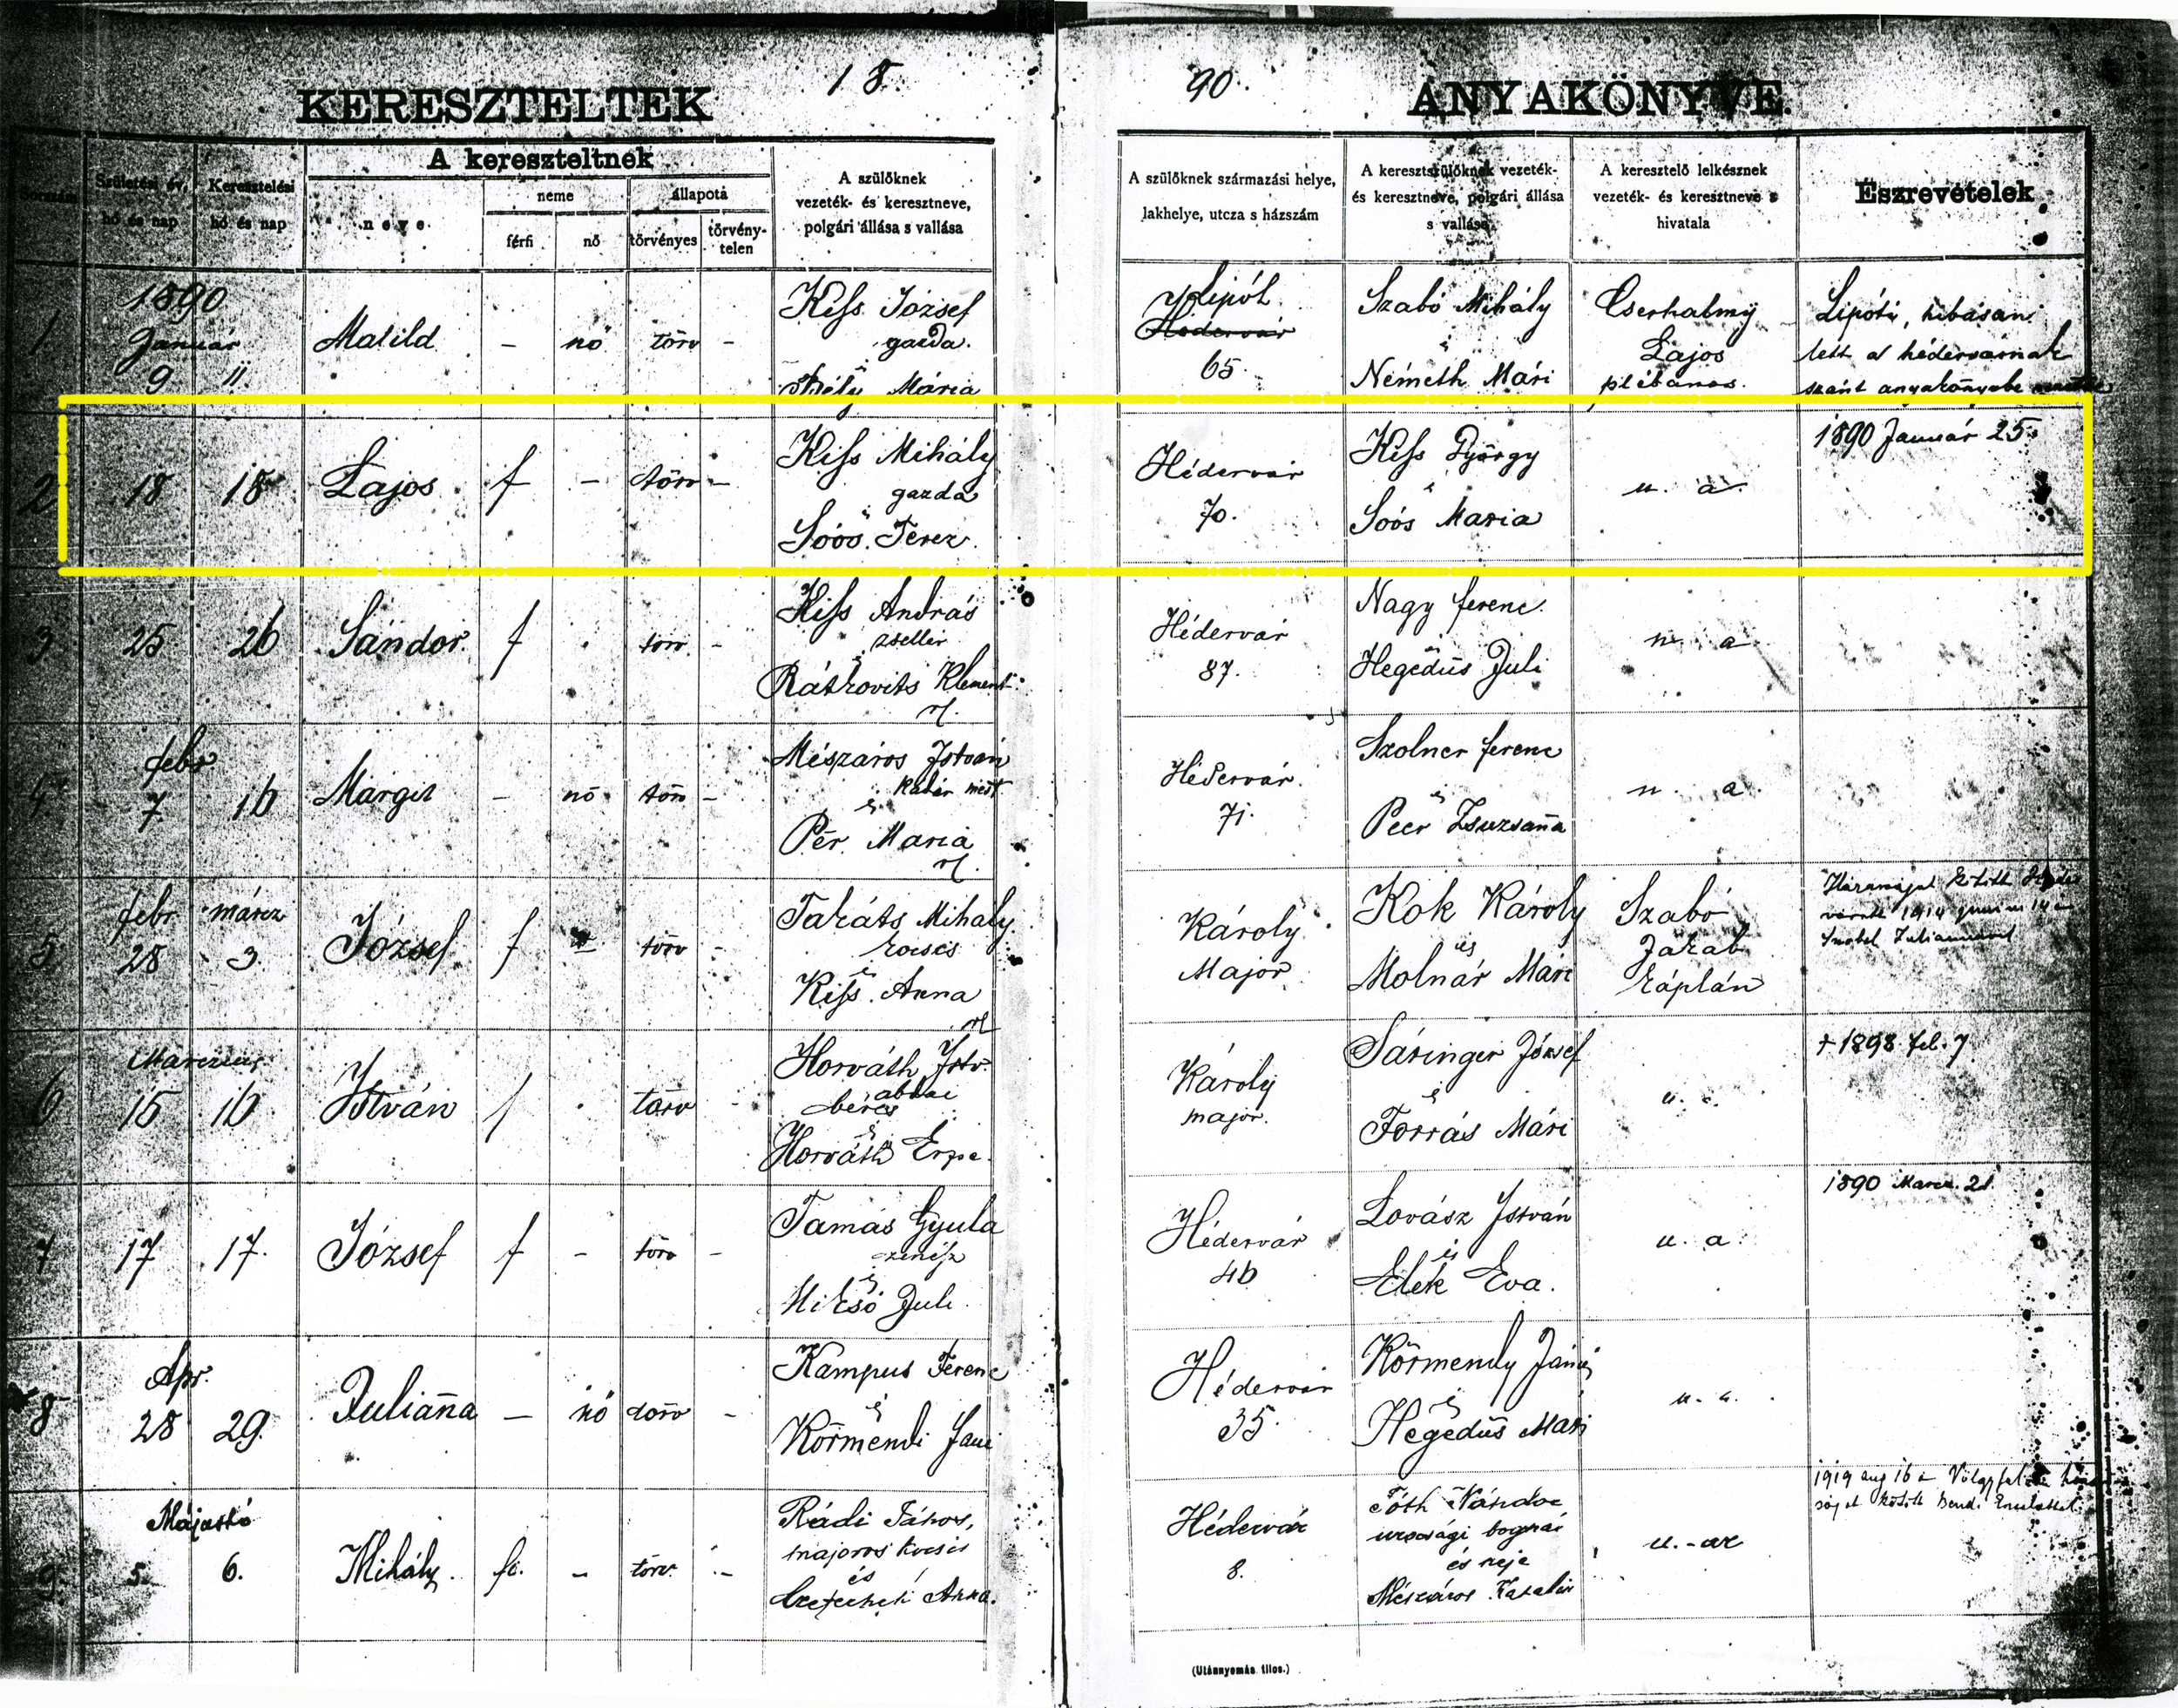 18
90.
KERESZTELTEK
ANYAKÖNYVE.
A kereszteltnek
Születési év, hó és nap
Keresztelési hó és nap
neve
neme
férfi
nő
állapota
törvényes
törvény-
telen
A szülőknek
vezeték- és keresztneve,
polgári állása s vallása
A szülőknek származási helye,
lakhelye, utcza s házszám
A keresztszülőknek vezeték-
és keresztneve, polgári állása
s vallása
A keresztelő lelkésznek
vezeték- és keresztneve s
hivatala
Észrevételek
1
1890
Január
9 11
Matild - nő törv -
Kiss József
gazda.
Mária
Lipót
Hédervár
65
Szabó Mihály
és
Németh Mári
Cserhalmy
Lajos
plébános.
Lipóti, hibásan
lett a hédervárinak
szánt anyakönyvbe
2 18 18 Lajos f - törv -
Kiss Mihály
gazda
és
Soós Teréz
Hédervár
70.
Kiss György
és
Soós Maria
u. a.
1890 Január 25.
3 25 26 Sándor. f törv -
Kiss András
zsellér
és
Rátkovits Klement
Hédervár
87.
Nagy ferenc
és
Hegedüs Juli
u. a
4
febr
7 16 Margit - nő törv -
Mészáros István
és
Pér Maria
Hédervár.
71.
Szolner ferenc
és
Peer Zsuzsana
u. a.
5
febr. márcz
28 3 József f - törv -
Takáts Mihály
kocsis
és
Kiss Anna
Károly
Major
Kok Károly
és
Molnár Mári
Szabó
Jakab
káplán
1914
6
Marczius
15 16 István f törv -
Horváth Istv.
béres
és
Horváth
Károly
major.
Saringer József
és
Forrás Mári
u. a.
+ 1898 feb. 7
7 17 17. József f - törv -
Tamás Gyula
zenész
és
Mikó Juli
Hédervár
46
Lovász István
és
Elek Eva.
u. a.
1890 Marcz. 21.
8
Apr.
28 29. Juliana - nő törv -
Kampus Ferenc
és
Körmendi
Hédervár
35.
Körmendy
és
Hegedüs Mari
u. a.
9
5. 6. Mihály. fi. - törv. -
Rádi János,
majoros kocsis
és
Anna.
Hédervár
8.
Tóth Nándor
urasági bognár
és neje
Mészáros Katalin
u.-az
1919 aug 16
(Utánnyomás tilos.)